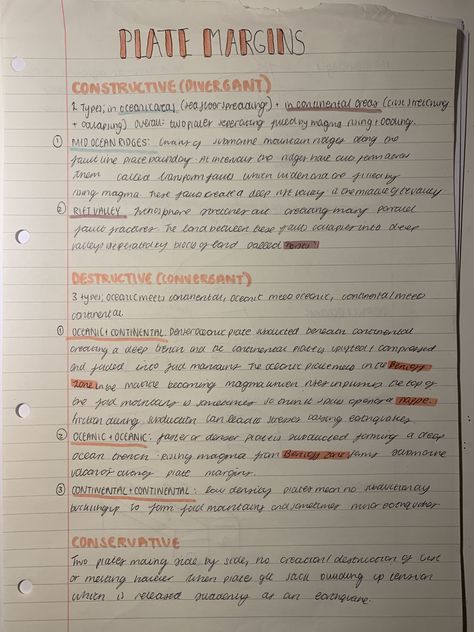 PLATE MARGINS
CONSTRUCTIVE (DIVERGANT)
2 Types; in oceanic areas (sea floor spreading) + in continental areas (crust stretching
+ collapsing) Overall: two plates seperating filled by magma rising + cooling.
① MID OCEAN RIDGES: of submarine mountain ridges along the
fault line plate boundary. At intervals the ridges have
them called transform faults which widen and are filled by
rising magma. These faults create a deep rift valley in the middle of
② RIFT VALLEY: lithosphere stretches and creating many parallel
faults fractures. The land between these faults collapses into deep
valleys seperated by blocks of land called "horsts"
DESTRUCTIVE (CONVERGANT)
3 types; oceanic meets continental, oceanic meets oceanic, continental meets
continental
① OCEANIC + CONTINENTAL: Denser oceanic plate subducted beneath continental
creating a deep trench and the continental plate is uplifted / compressed
and folded into fold mountains. The oceanic plate melts in the Benioff
Zone in the mantle becoming magma which rises in plumes. The top of
the fold mountains is sometimes so it splits opens a nappe.
Friction during subduction can lead to stresses causing earthquakes
② OCEANIC + OCEANIC: faster or denser plate is subducted forming a deep
ocean trench. Rising magma from Benioff Zone forms submarine
volcanoes along plate margins.
③ CONTINENTAL + CONTINENTAL: low density plates mean no subduction
buckling up to form fold mountains and sometimes minor earthquakes
CONSERVATIVE
Two plates moving side by side, no creation / destruction of crust
or melting however when plates get stuck building up tension
which is released suddenly as an earthquake.